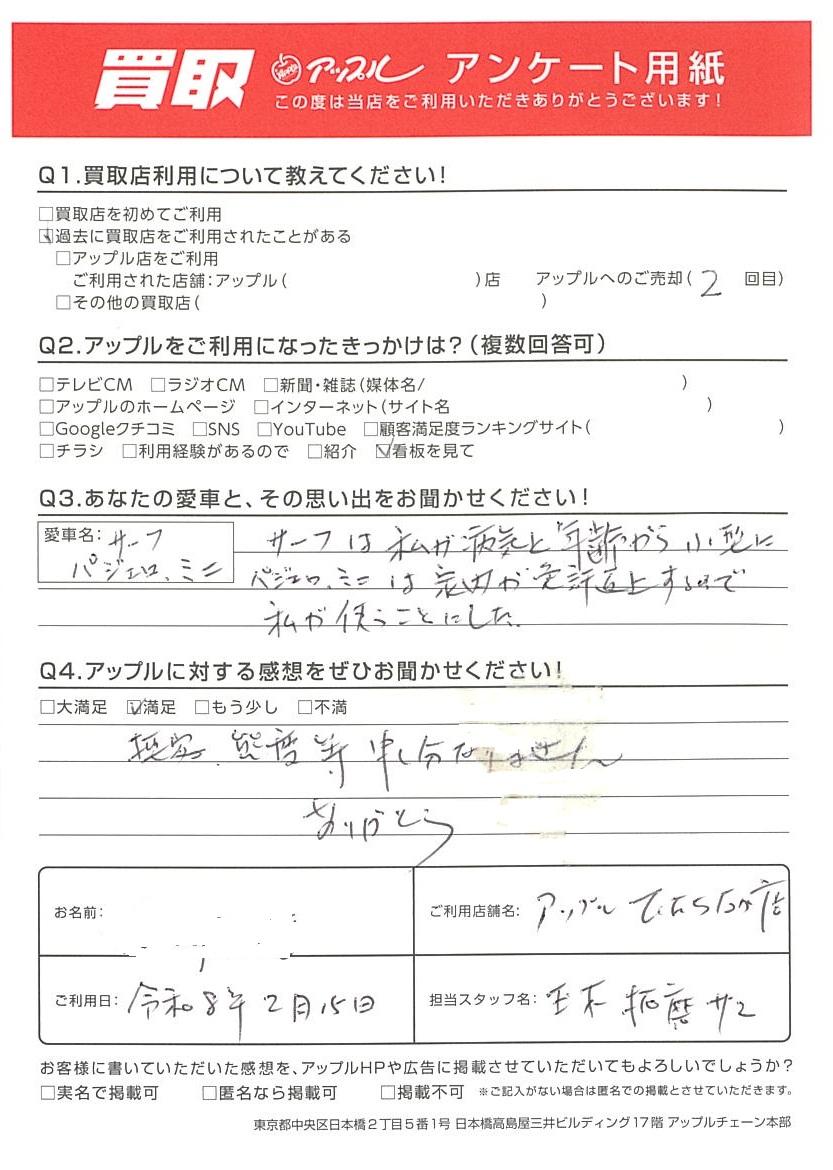 買取 アップル アンケート用紙
この度は当店をご利用いただきありがとうございます!
Q1.買取店利用について教えてください!
□買取店を初めてご利用
☑過去に買取店をご利用されたことがある
□アップル店をご利用
ご利用された店舗:アップル( )店 アップルへのご売却( 2 回目)
□その他の買取店( )
Q2.アップルをご利用になったきっかけは?(複数回答可)
□テレビCM □ラジオCM □新聞・雑誌(媒体名/ )
□アップルのホームページ □インターネット(サイト名 )
□Googleクチコミ □SNS □YouTube □顧客満足度ランキングサイト( )
□チラシ □利用経験があるので □紹介 ☑看板を見て
Q3.あなたの愛車と、その思い出をお聞かせください!
愛車名: サーフ
パジェロ、ミニ
サーフは私が病気と年齢から小型に
パジェロ、ミニは家内が免許返上するので
私が使うことにした.
Q4.アップルに対する感想をぜひお聞かせください!
□大満足 ☑満足 □もう少し □不満
接客、態度等申し分ありません
ありがとう
お名前:
ご利用店舗名: アップル 店
ご利用日: 令和8年2月15日
担当スタッフ名: 拓磨サン
お客様に書いていただいた感想を、アップルHPや広告に掲載させていただいてもよろしいでしょうか?
□実名で掲載可 □匿名なら掲載可 □掲載不可 ※ご記入がない場合は匿名での掲載とさせていただきます。
東京都中央区日本橋2丁目5番1号 日本橋高島屋三井ビルディング17階 アップルチェーン本部